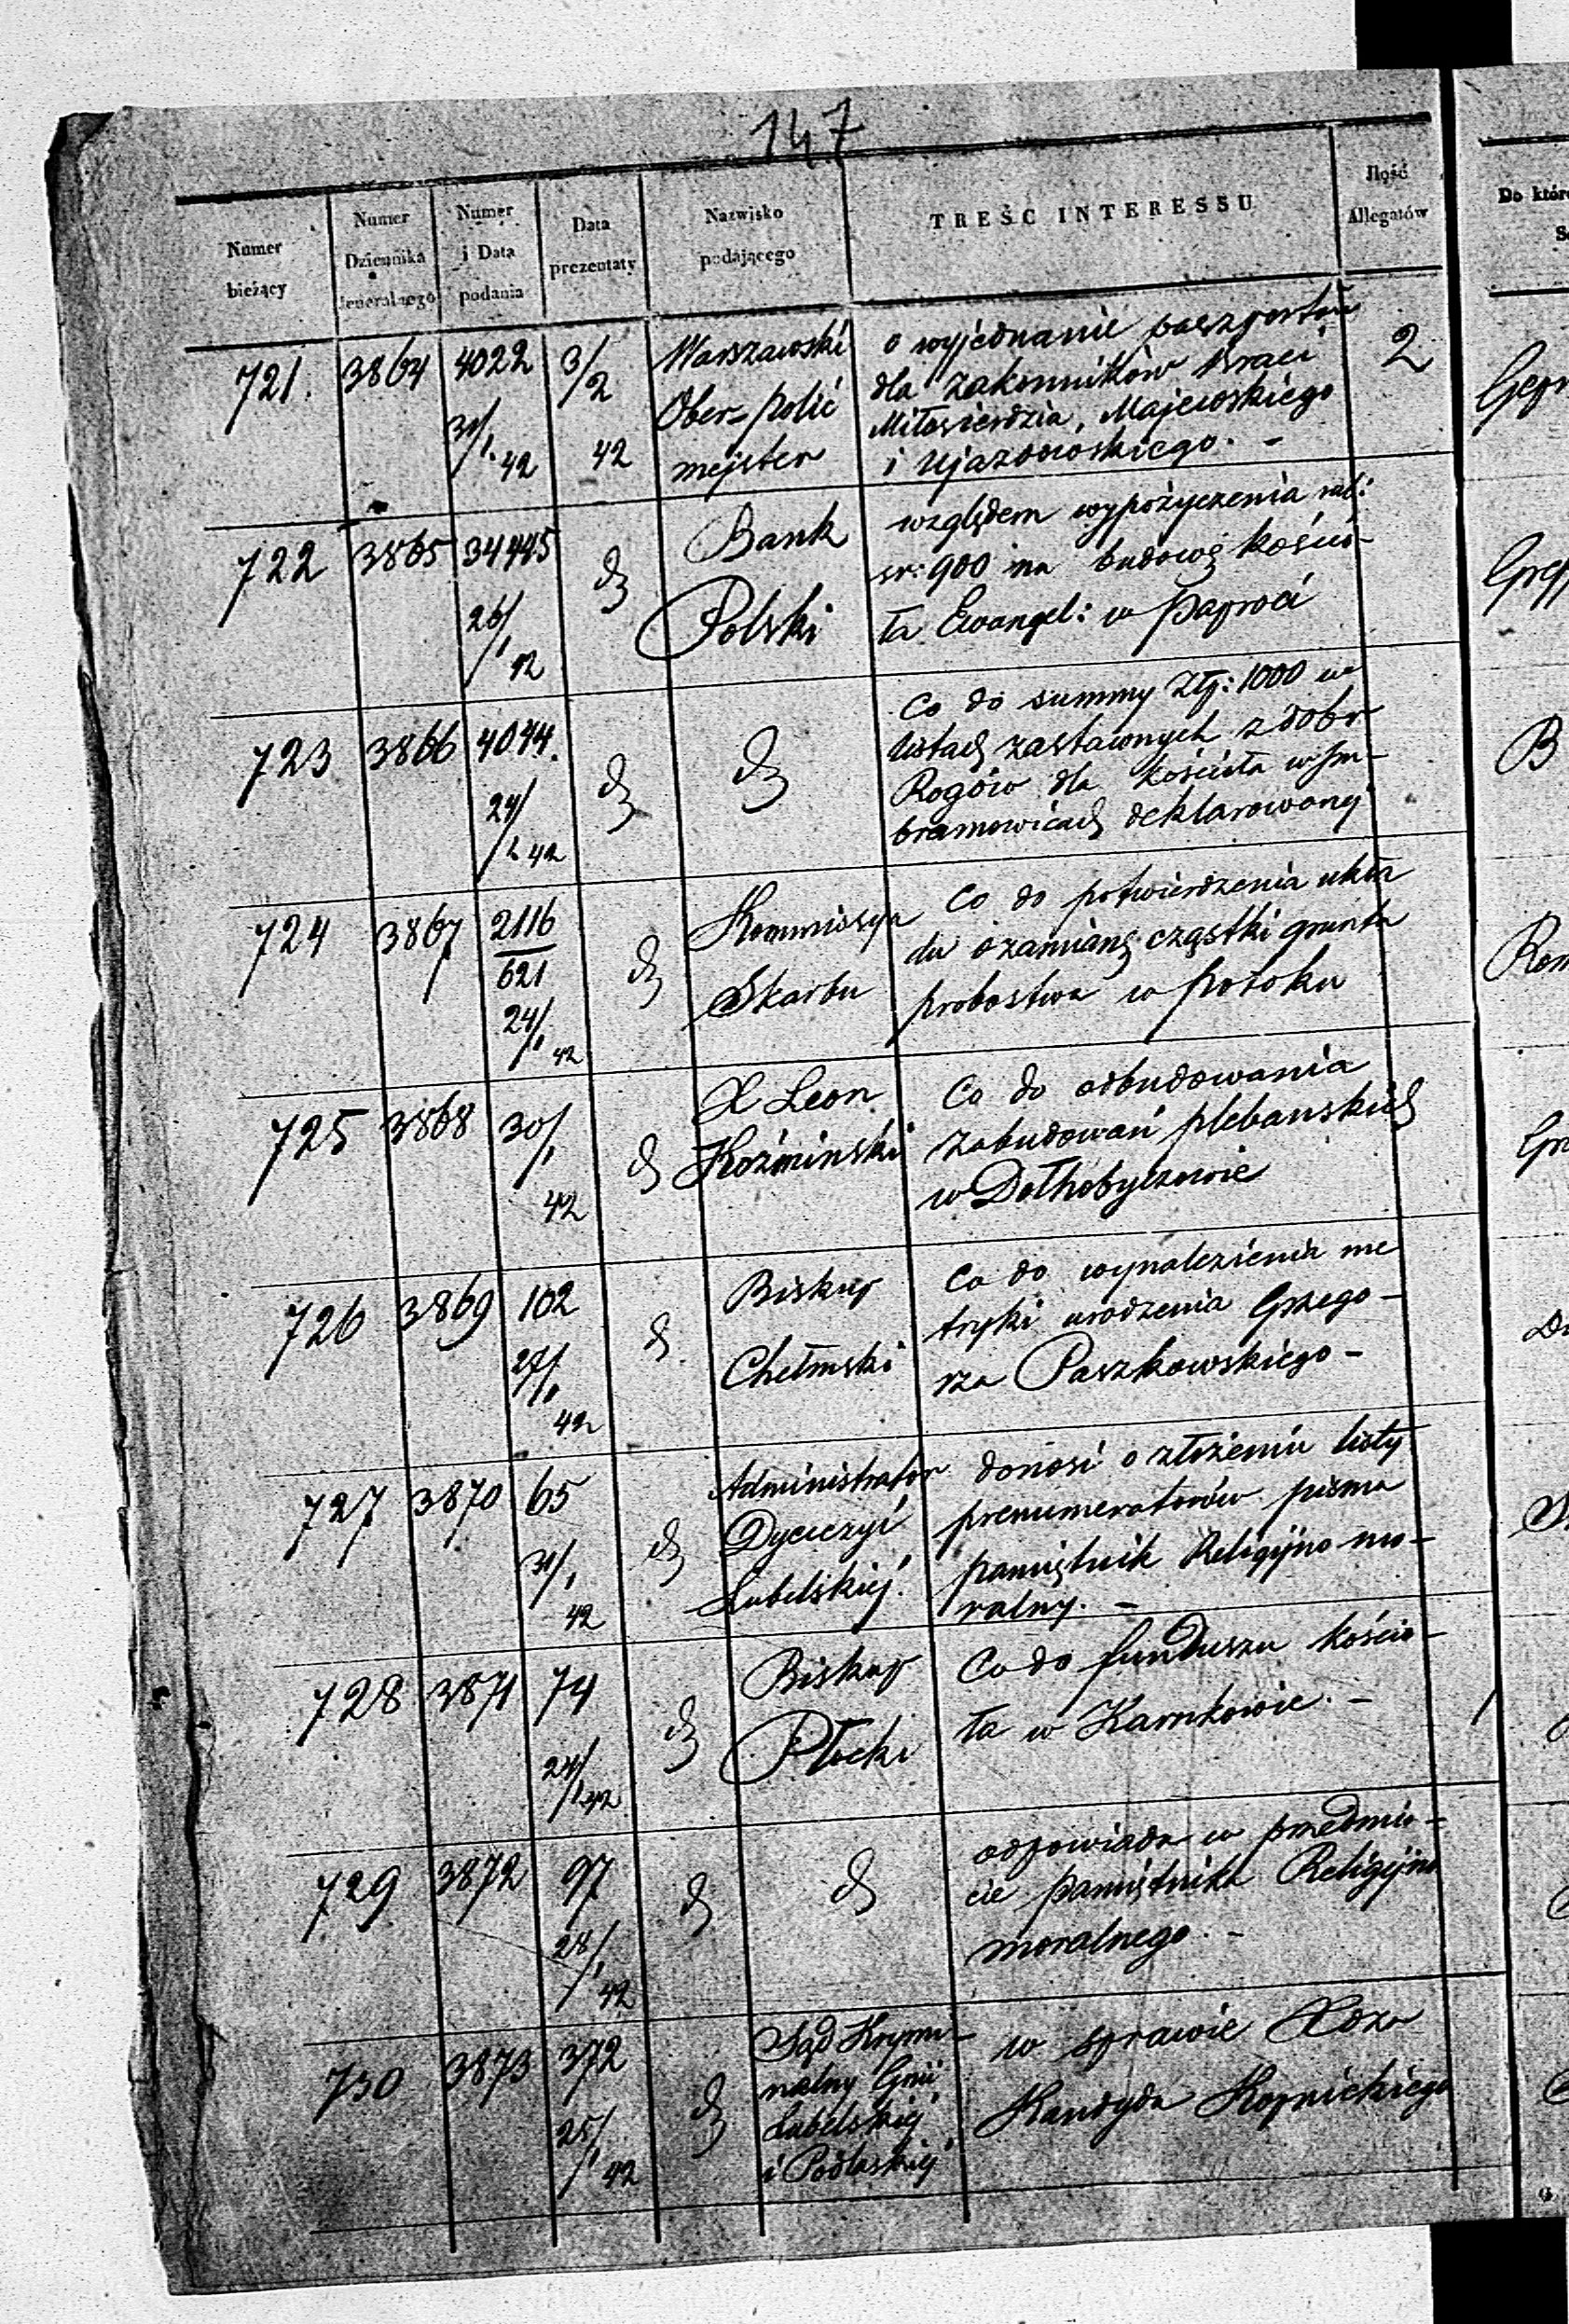 147
Numer bieżący
Numer Dziennika Jeneralnego
Numer i Data podania
Data prezentaty
Nazwisko podającego
TREŚC INTERESSU
Ilość Allegatów
721. 3864 4022 31/1. 42 3/2 42
Warszawski
Ober-polic
mejster
o wyjednanie paszportów
dla zakonników Braci
Miłosierdzia, Majewskiego
i Ujazdowskiego. -
2
722 3865 34445 26/1 42 d
Bank
Polski
względem wypożyczenia rub:
sr: 900 na budowę kościo-
ła Ewangel: w Paproci
723 3866 4044. 24/1 42 d d
Co do summy Złp: 1000 w
listach zastawnych z dóbr
Rogów dla kościoła w Im-
bramowicach deklarowanej
724 3867 2116/621 24/1 42 d
Kommissya
Skarbu
Co do potwierdzenia ukła
du o zamianę cząstki gruntu
probostwa w Potoku
725 3868 30/1 42 d
X Leon
Koźminski
Co do odbudowania
zabudowań plebanskich
w Dołhobyczowie
726 3869 102 27/1 42 d
Biskup
Chełmski
Co do wynalezienia me
tryki urodzenia Grzego-
rza Paszkowskiego -
727 3870 65 31/1 42 d
Administrator
Dyecezyi
Lubelskiej.
donosi o złożeniu listy
prenumeratorów pisma
pamiętnik Religijno mo-
ralny. -
728 3871 74 24/1 42 d
Biskup
Płocki
Co do funduszu kościo-
ła w Karnkowie. -
729 3872 97 28/1 42 d d
odpowiada w przedmio-
cie pamiętnika Religijno
moralnego. -
730 3873 372 25/1 42 d
Sąd Krymi-
nalny Gnii
Lubelskiej
i Podlaskiej
w sprawie Xdza
Kandyda Kopnickiego